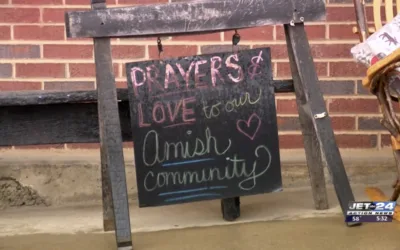 PRAYERS &
LOVE to our
Amish
community
JET-24
ACTION NEWS
58° 5:32